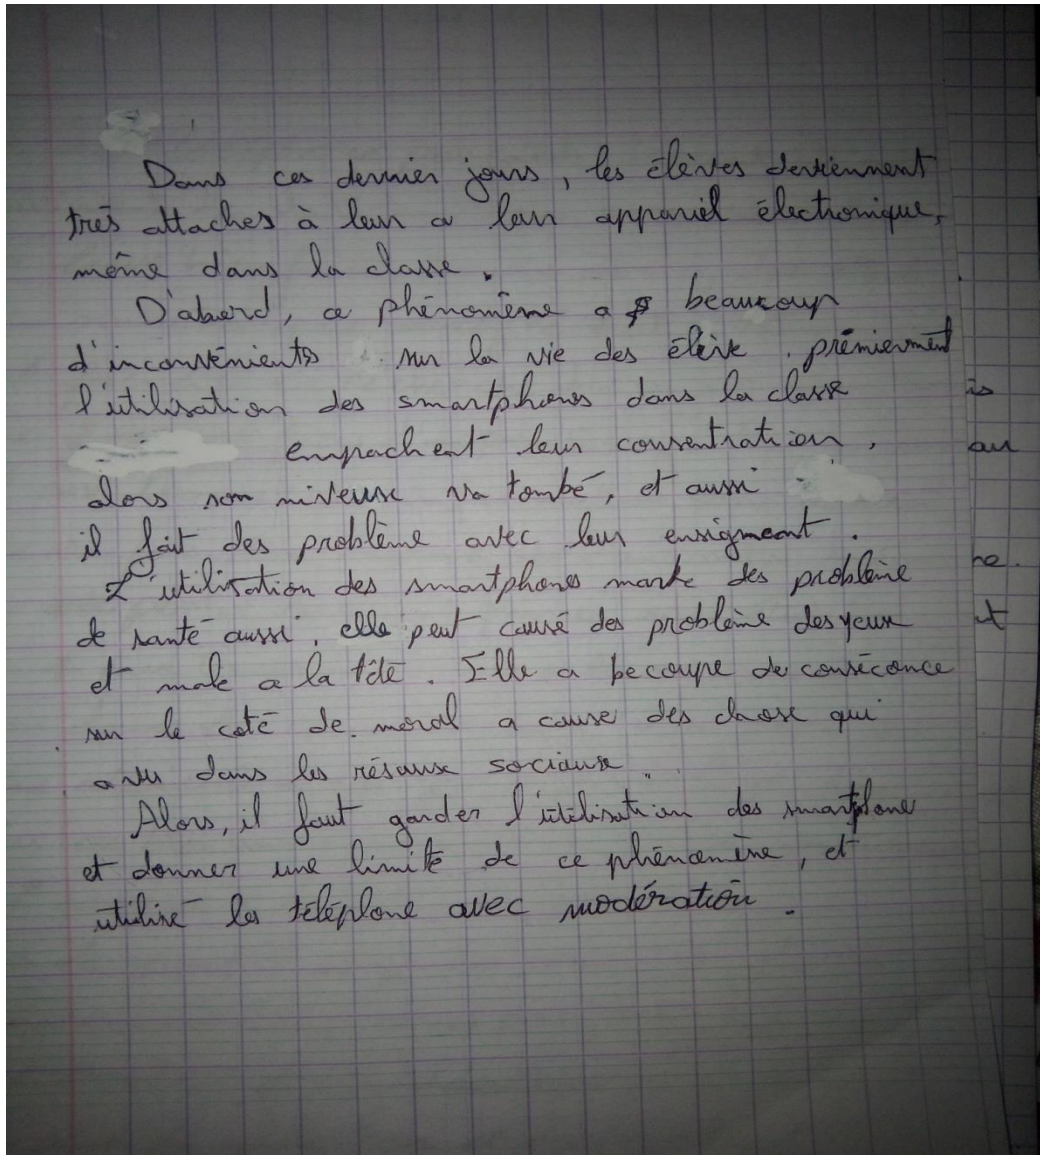 Dans ces dernier jours, les élèves deviennent
très attaches à leur a leur appariel électronique,
même dans la classe.
D'abord, ce phénomène a beaucoup
d'inconvénients sur la vie des élève. prémierment
l'utilisation des smartphones dans la classe
empachent leur consentration,
alors son niveux va tombé, et aussi
il fait des problème avec leur ensigmeant.
L'utilisation des smartphones marke des problème
de santé aussi, elle peut causé des problème des yeux
et male a la tête. Elle a becoupe de consécance
sur le coté de moral a cause des chose qui
a vu dans les résaux sociaux.
Alors, il faut garder l'utilisation des smartphone
et donner une limite de ce phénomène, et
utilise les téléphone avec modération.
is
au
ne.
t